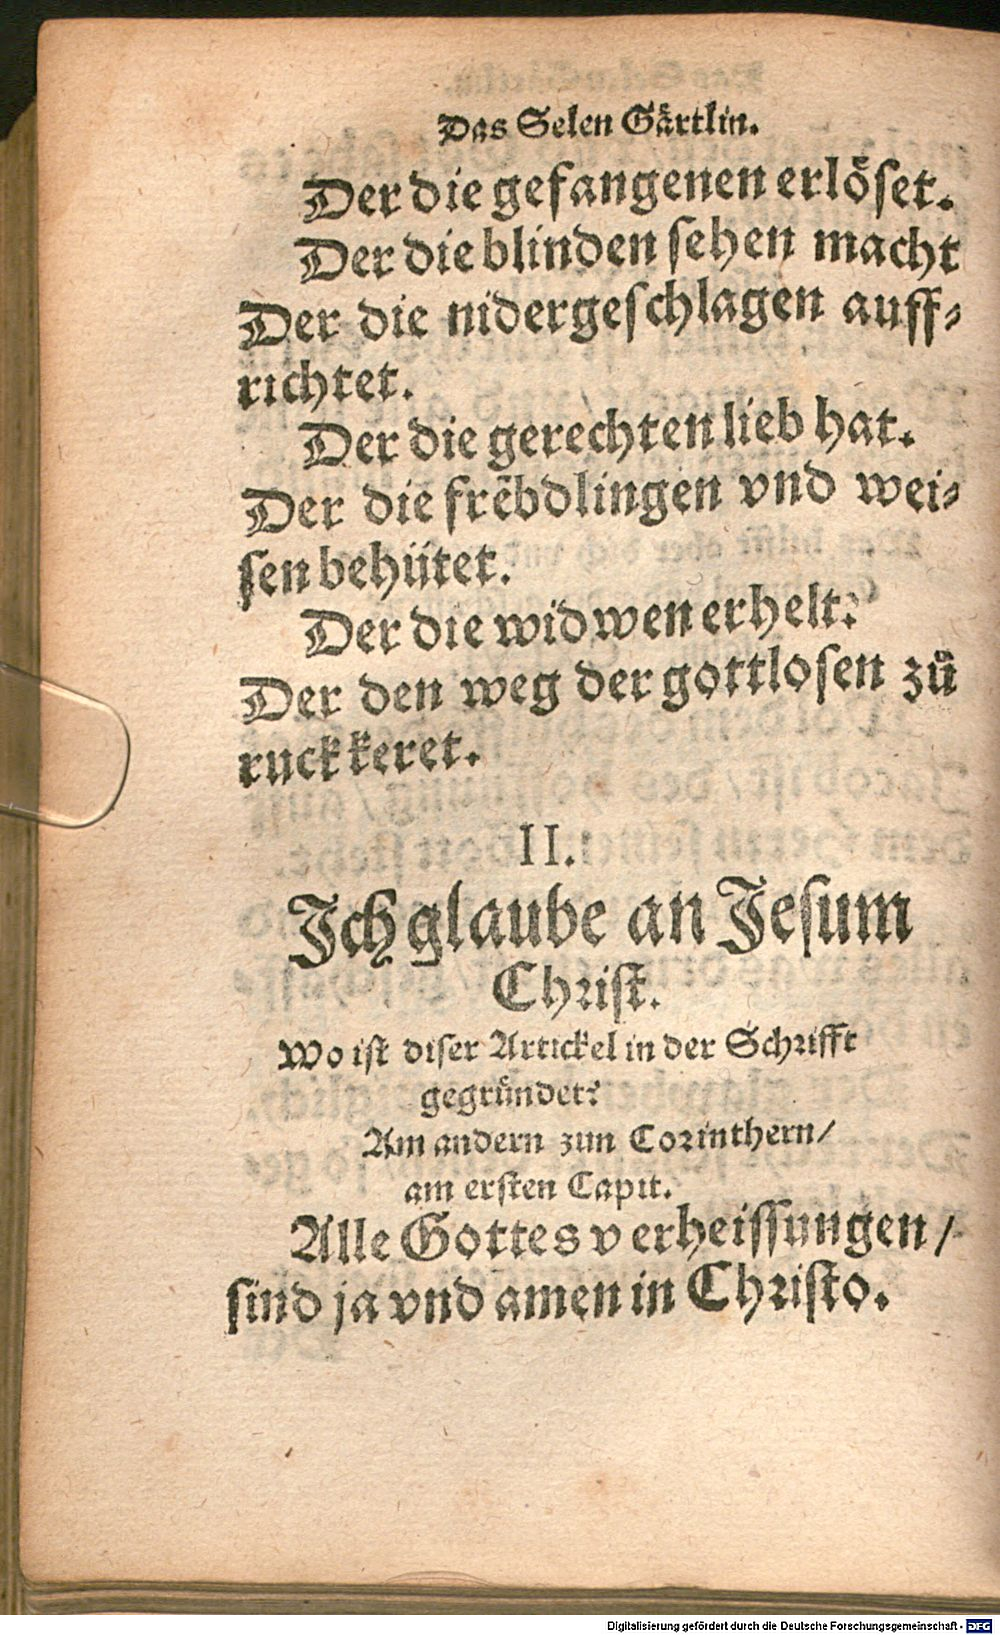 Das Selen Gaͤrtlin.
Der die gefangenen erloͤset.
Der die blinden sehen macht
Der die nidergeschlagen auff⸗
richtet.
Der die gerechten lieb hat.
Der die frẽbdlingen vnd wei⸗
sen behuͤtet.
Der die widwen erhelt.
Der den weg der gottlosen zuͤ
ruck keret.
II.
Ich glaube an Jesum
Christ.
Wo ist diser Artickel in der Schrifft
gegruͤndet?
Am andern zun Corinthern/
am ersten Capit.
Alle Gottes verheissungen/
sind ja vnd amen in Christo.
Digitalisierung gefördert durch die Deutsche Forschungsgemeinschaft - DFG